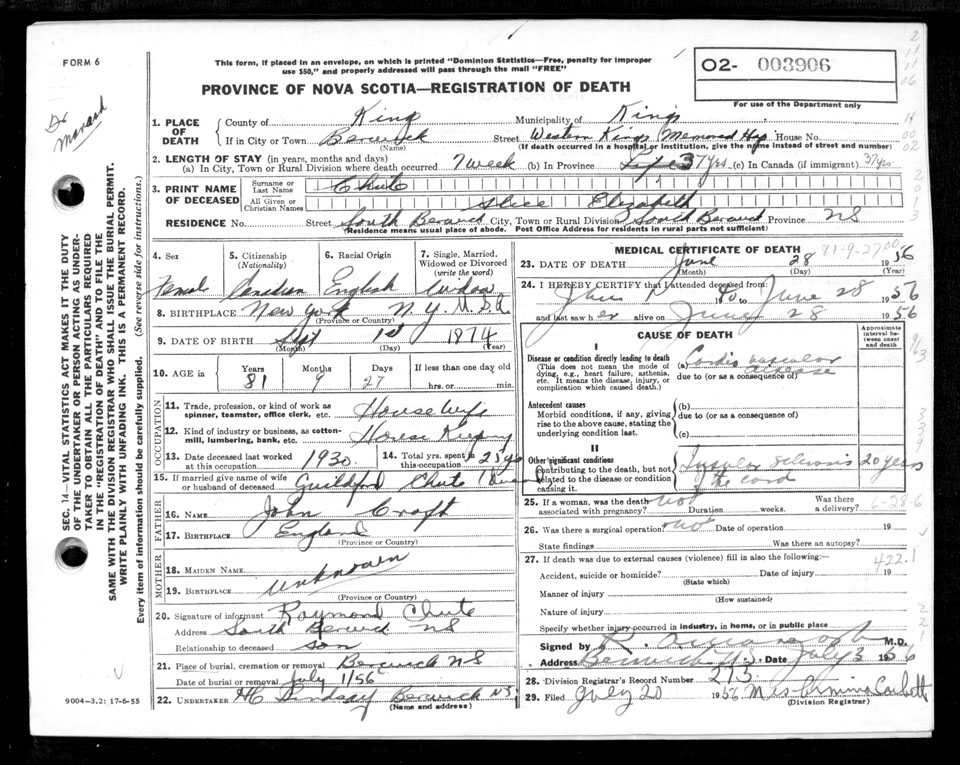 FORM 6
This form, if placed in an envelope, on which is printed "Dominion Statistics—Free, penalty for improper
use $50," and properly addressed will pass through the mail "FREE"
O2- 003906
PROVINCE OF NOVA SCOTIA—REGISTRATION OF DEATH
For use of the Department only
Dr
1. PLACE OF DEATH
County of Kings Municipality of Kings
If in City or Town Berwick Street Western Kings Memorial Hsp House No.
(Name) (If death occurred in a hospital or institution, give the name instead of street and number)
2. LENGTH OF STAY (in years, months and days)
(a) In City, Town or Rural Division where death occurred 7 week (b) In Province Life 37 yrs (c) In Canada (if immigrant) 37 yrs
3. PRINT NAME OF DECEASED
Surname or Last Name Chute
All Given or Christian Names Alice Elizabeth
RESIDENCE No. Street South Berwick City, Town or Rural Division South Berwick Province NS
(Residence means usual place of abode. Post Office Address for residents in rural parts not sufficient)
4. Sex
Female
5. Citizenship (Nationality)
Canadian
6. Racial Origin
English
7. Single, Married, Widowed or Divorced (write the word)
Widow
8. BIRTHPLACE New York N.Y. U.S.A
(Province or Country)
9. DATE OF BIRTH Sept 1st 1874
(Month) (Day) (Year)
10. AGE in
Years 81
Months 9
Days 27
If less than one day old
hrs. or min.
OCCUPATION
11. Trade, profession, or kind of work as spinner, teamster, office clerk, etc. House Wife
12. Kind of industry or business, as cotton-mill, lumbering, bank, etc. House Keeping
13. Date deceased last worked at this occupation 1930
14. Total yrs. spent in this occupation 25 yrs
15. If married give name of wife or husband of deceased Guildford Chute
FATHER
16. NAME John Croft
17. BIRTHPLACE England
(Province or Country)
MOTHER
18. MAIDEN NAME
19. BIRTHPLACE unknown
(Province or Country)
20. Signature of informant Raymond Chute
Address South Berwick NS
Relationship to deceased son
21. Place of burial, cremation or removal Berwick NS
Date of burial or removal July 1/56
22. UNDERTAKER Lindsay Berwick NS
(Name and address)
MEDICAL CERTIFICATE OF DEATH
23. DATE OF DEATH June 28 1956
(Month) (Day) (Year)
24. I HEREBY CERTIFY that I attended deceased from:
to June 28 1956
and last saw h er alive on June 28 1956
CAUSE OF DEATH
Approximate interval between onset and death
I
Disease or condition directly leading to death
(This does not mean the mode of dying, e.g., heart failure, asthenia, etc. It means the disease, injury, or complication which caused death.)
(a) Cardio vascular disease
due to (or as a consequence of)
Antecedent causes
Morbid conditions, if any, giving rise to the above cause, stating the underlying condition last.
(b)
due to (or as a consequence of)
(c)
II
Other significant conditions
Contributing to the death, but not related to the disease or condition causing it.
sclerosis 20 years
cord
25. If a woman, was the death associated with pregnancy? Not Duration weeks. Was there a delivery?
26. Was there a surgical operation? Not Date of operation 19
State findings Was there an autopsy?
27. If death was due to external causes (violence) fill in also the following:— 422.1
Accident, suicide or homicide? Date of injury 19
(State which)
Manner of injury
(How sustained)
Nature of injury
Specify whether injury occurred in industry, in home, or in public place
Signed by M.D.
Address Berwick NS. Date July 3 1956
28. Division Registrar's Record Number 213
29. Filed July 20 1956 Mrs Corbett
(Division Registrar)
SEC. 14—VITAL STATISTICS ACT MAKES IT THE DUTY
OF THE UNDERTAKER OR PERSON ACTING AS UNDER-
TAKER TO OBTAIN ALL THE PARTICULARS REQUIRED
IN THE "REGISTRATION OF DEATH" AND TO FILE THE
SAME WITH THE DIVISION REGISTRAR WHO SHALL ISSUE THE BURIAL PERMIT.
WRITE PLAINLY WITH UNFADING INK. THIS IS A PERMANENT RECORD.
Every item of information should be carefully supplied. (See reverse side for instructions.)
9004-3.2: 17-6-55